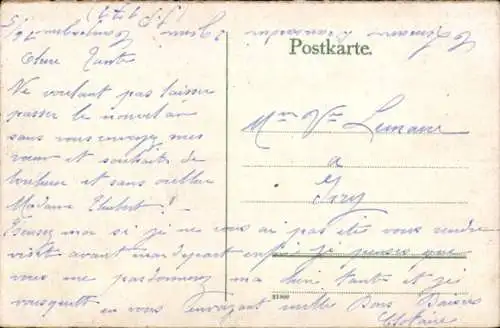 Postkarte.
Chère Tante
Ne voulant pas laisser
passer le nouvel an
sans vous envoyez mes
vœux et souhaits de
bonheur et sans oublier
Madame Hubert! -
Excusez moi si je ne vous ai pas été vous rendre
visit avant mon depart enfin je penses que
vous me pardonnerez ma chère tante et je
vous quitt en vous envoyant mille Bons Baisers
Clotaire
Mme Ve Lemaire
a
Izy